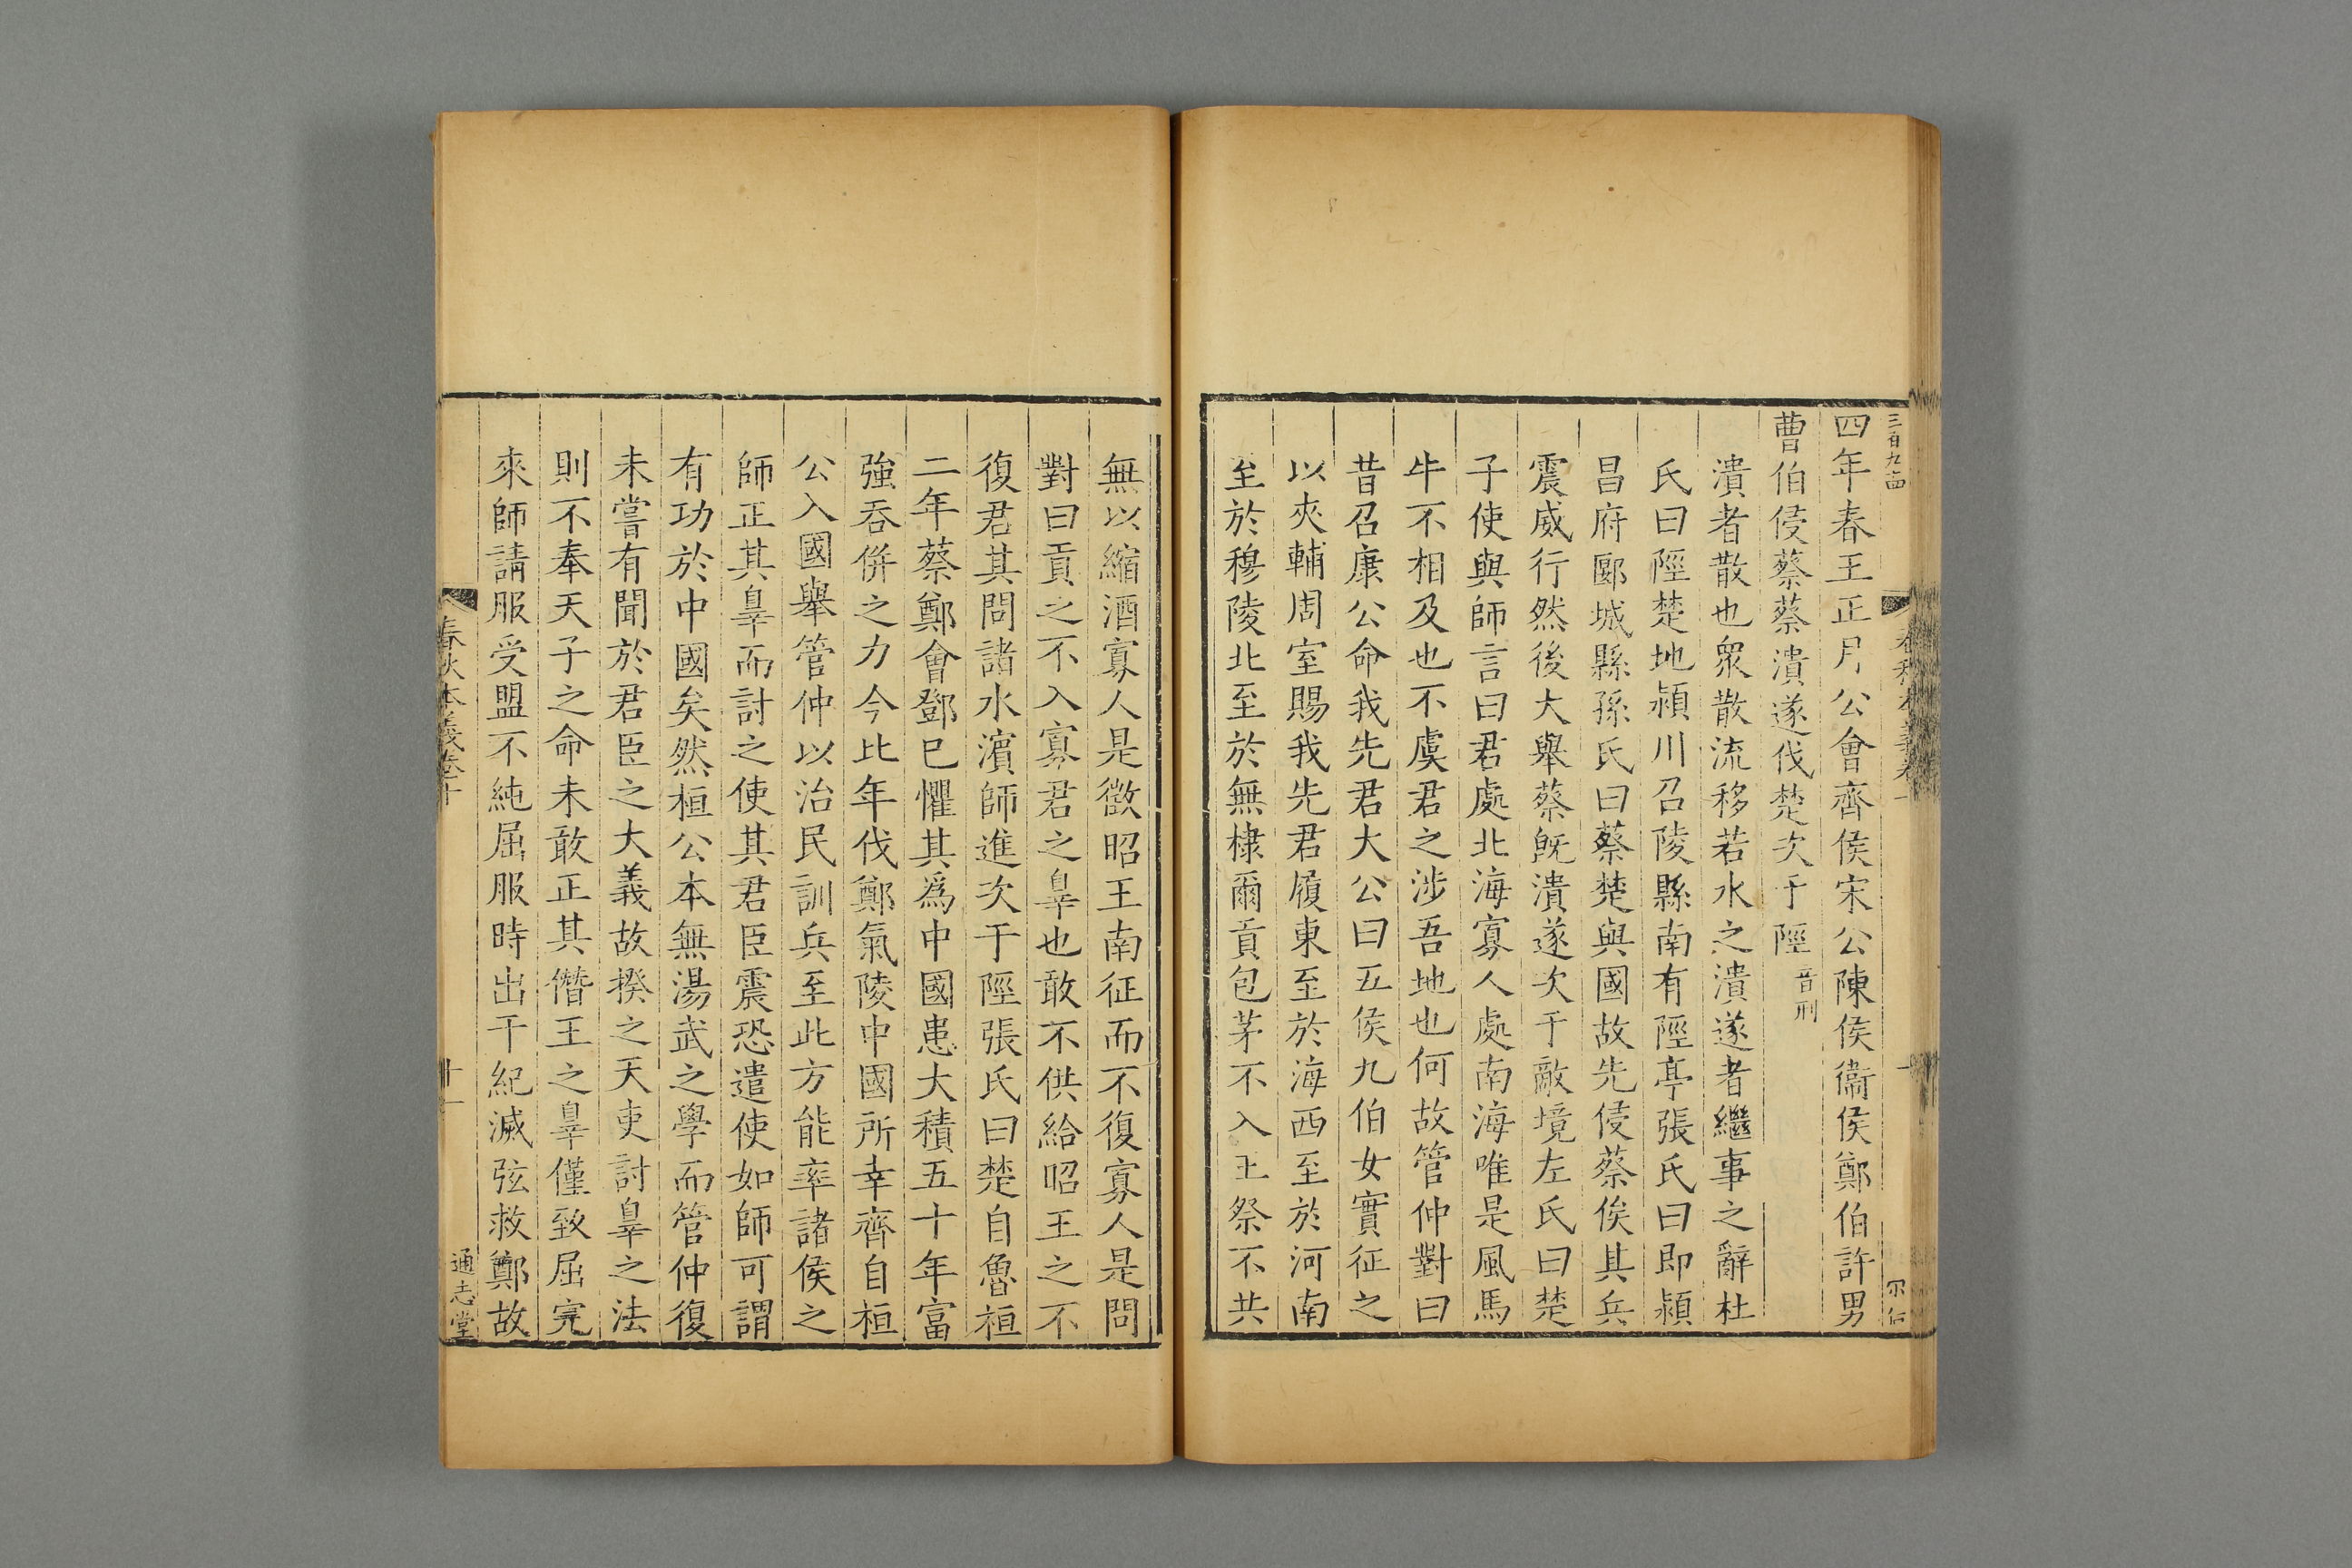 三百九十四
四年春王正月公會齊侯宋公陳侯衞侯鄭伯許男
曹伯侵蔡蔡潰遂伐楚次于陘音刑
潰者散也衆散流移若水之潰遂者繼事之辭杜
氏曰陘楚地潁川召陵縣南有陘亭張氏曰即潁
昌府郾城縣孫氏曰蔡楚與國故先侵蔡俟其兵
震威行然後大舉蔡旣潰遂次于敵境左氏曰楚
子使與師言曰君處北海寡人處南海唯是風馬
牛不相及也不虞君之涉吾地也何故管仲對曰
昔召康公命我先君大公曰五侯九伯女實征之
以夾輔周室賜我先君履東至於海西至於河南
至於穆陵北至於無棣爾貢包茅不入王祭不共
無以縮酒寡人是徵昭王南征而不復寡人是問
對曰貢之不入寡君之辠也敢不供給昭王之不
復君其問諸水濱師進次于陘張氏曰楚自魯桓
二年蔡鄭會鄧已懼其爲中國患大積五十年富
強吞併之力今比年伐鄭氣陵中國所幸齊自桓
公入國舉管仲以治民訓兵至此方能率諸侯之
師正其辠而討之使其君臣震恐遣使如師可謂
有功於中國矣然桓公本無湯武之學而管仲復
未嘗有聞於君臣之大義故揆之天吏討辠之法
則不奉天子之命未敢正其僭王之辠僅致屈完
來師請服受盟不純屈服時出干紀滅弦救鄭故
春秋本義卷十
十一
通志堂